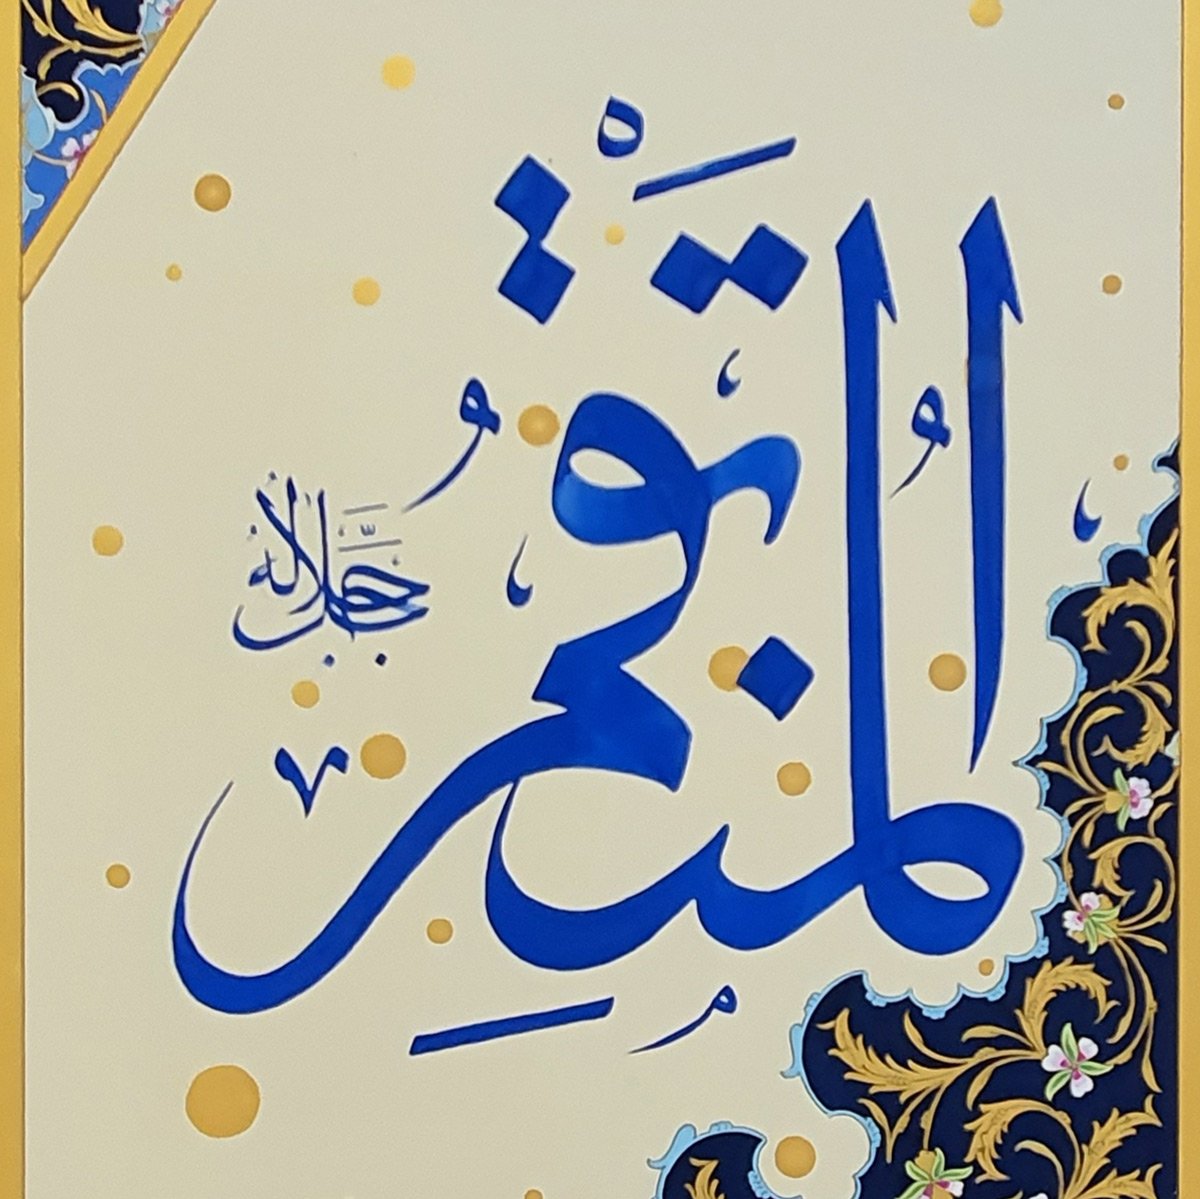 المُنْتَقِمُ
جل جلاله